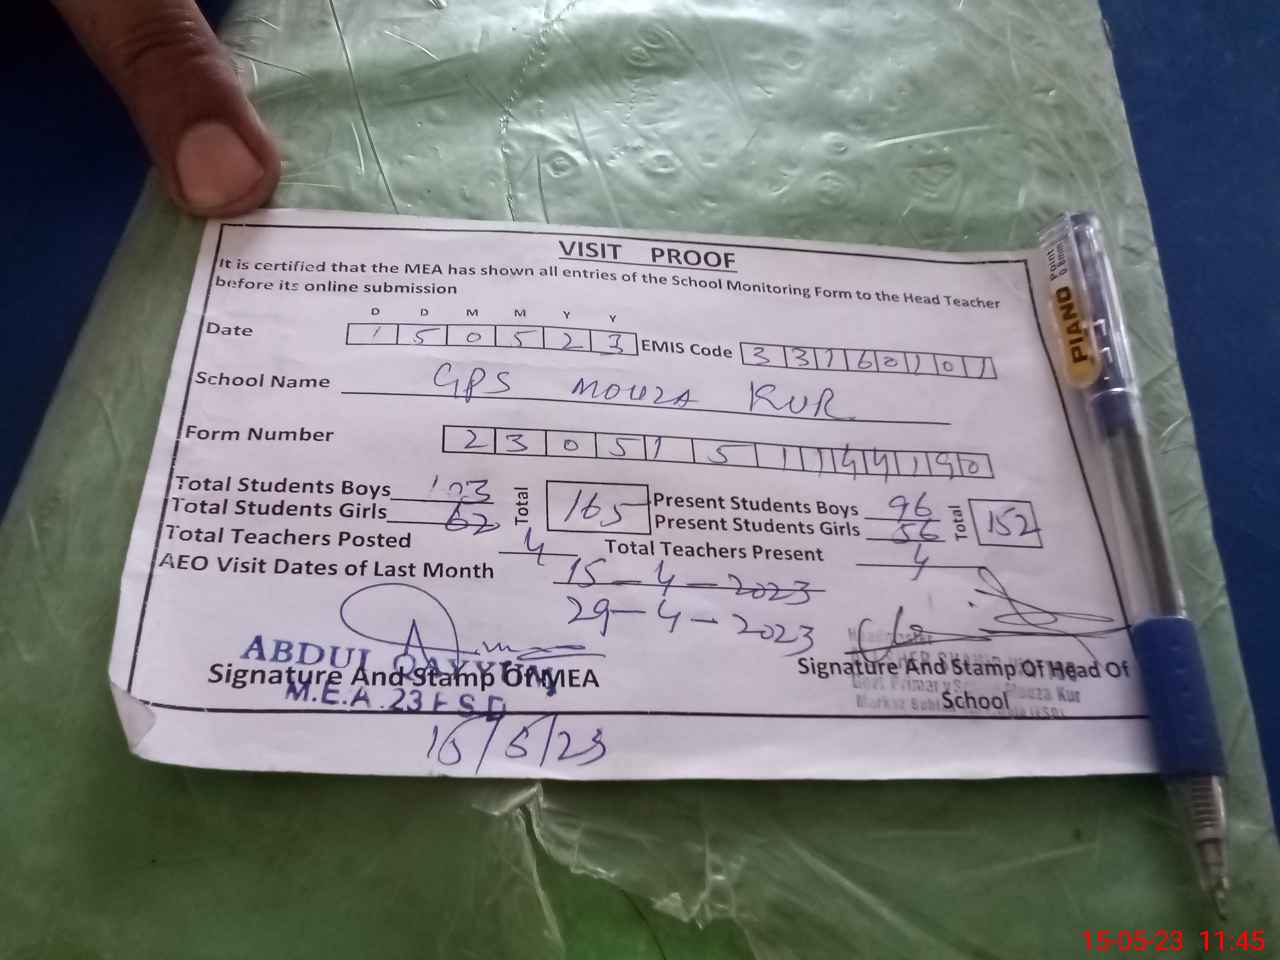 VISIT PROOF
It is certified that the MEA has shown all entries of the School Monitoring Form to the Head Teacher
before its online submission
D D M M Y Y
Date 1 5 0 5 2 3 EMIS Code 3 3 1 6 0 1 0 1
School Name GPS MOUZA KUR
Form Number 2 3 0 5 1 5 1 1 4 4 1 9 0
Total Students Boys 103 Total 165 Present Students Boys 96 Total 152
Total Students Girls 62 Present Students Girls 56
Total Teachers Posted 4 Total Teachers Present 4
AEO Visit Dates of Last Month 15-4-2023
29-4-2023
ABDUL QAYYUM
Headmaster
Signature And Stamp Of MEA Signature And Stamp Of Head Of
School
M.E.A. 23 FSD
Govt Primary School Mouza Kur
15/5/23
PIANO
Point
0.8mm
15-05-23 11:45